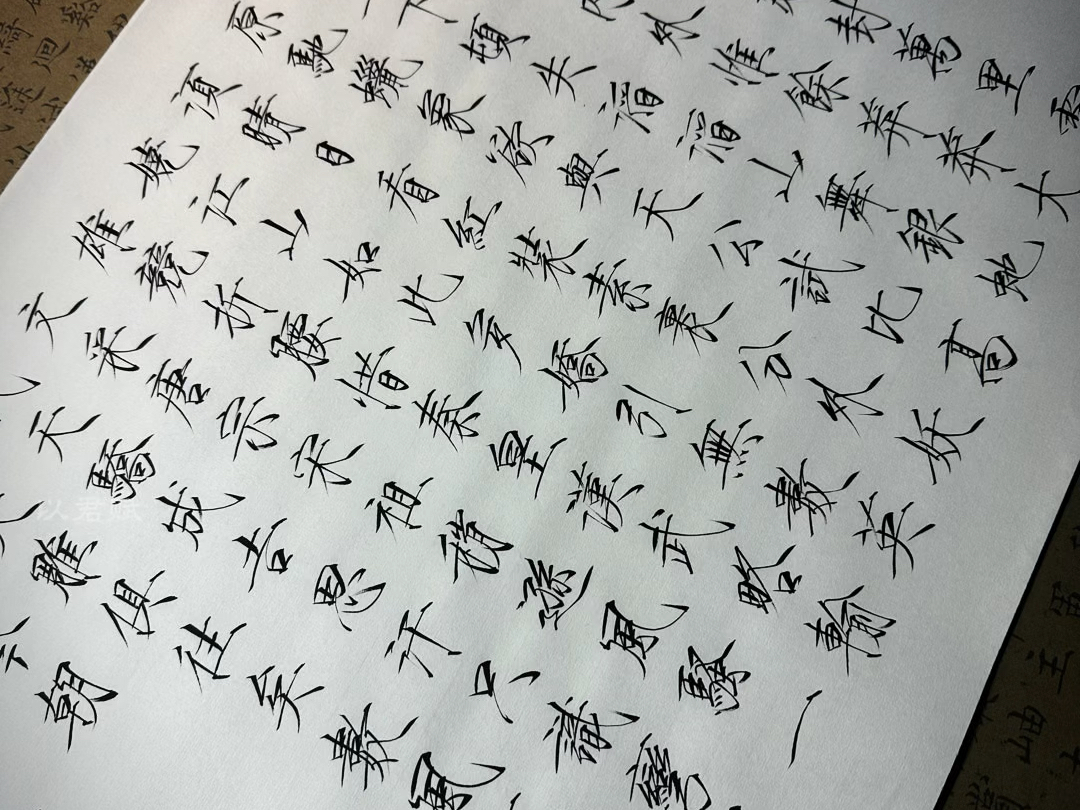 封萬里
外惟餘莽莽大
下頓失滔滔山舞銀蛇
原馳蠟象欲與天公試比高
須晴日看紅裝素裹分外妖
嬈江山如此多嬌引無數英
雄競折腰惜秦皇漢武略輸
文采唐宗宋祖稍遜風騷一
天驕成吉思汗只識彎
雕俱往矣數風
朝